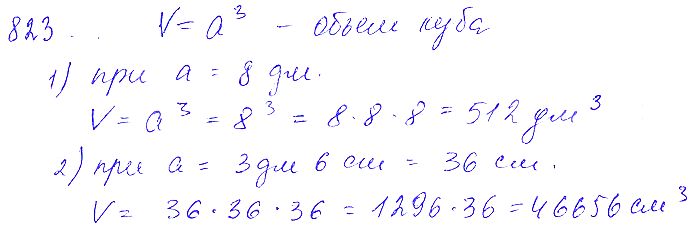 823. . V = a³ - объем куба
1) при a = 8 дм.
V = a³ = 8³ = 8·8·8 = 512 дм³
2) при a = 3 дм 6 см = 36 см.
V = 36·36·36 = 1296·36 = 46656 см³